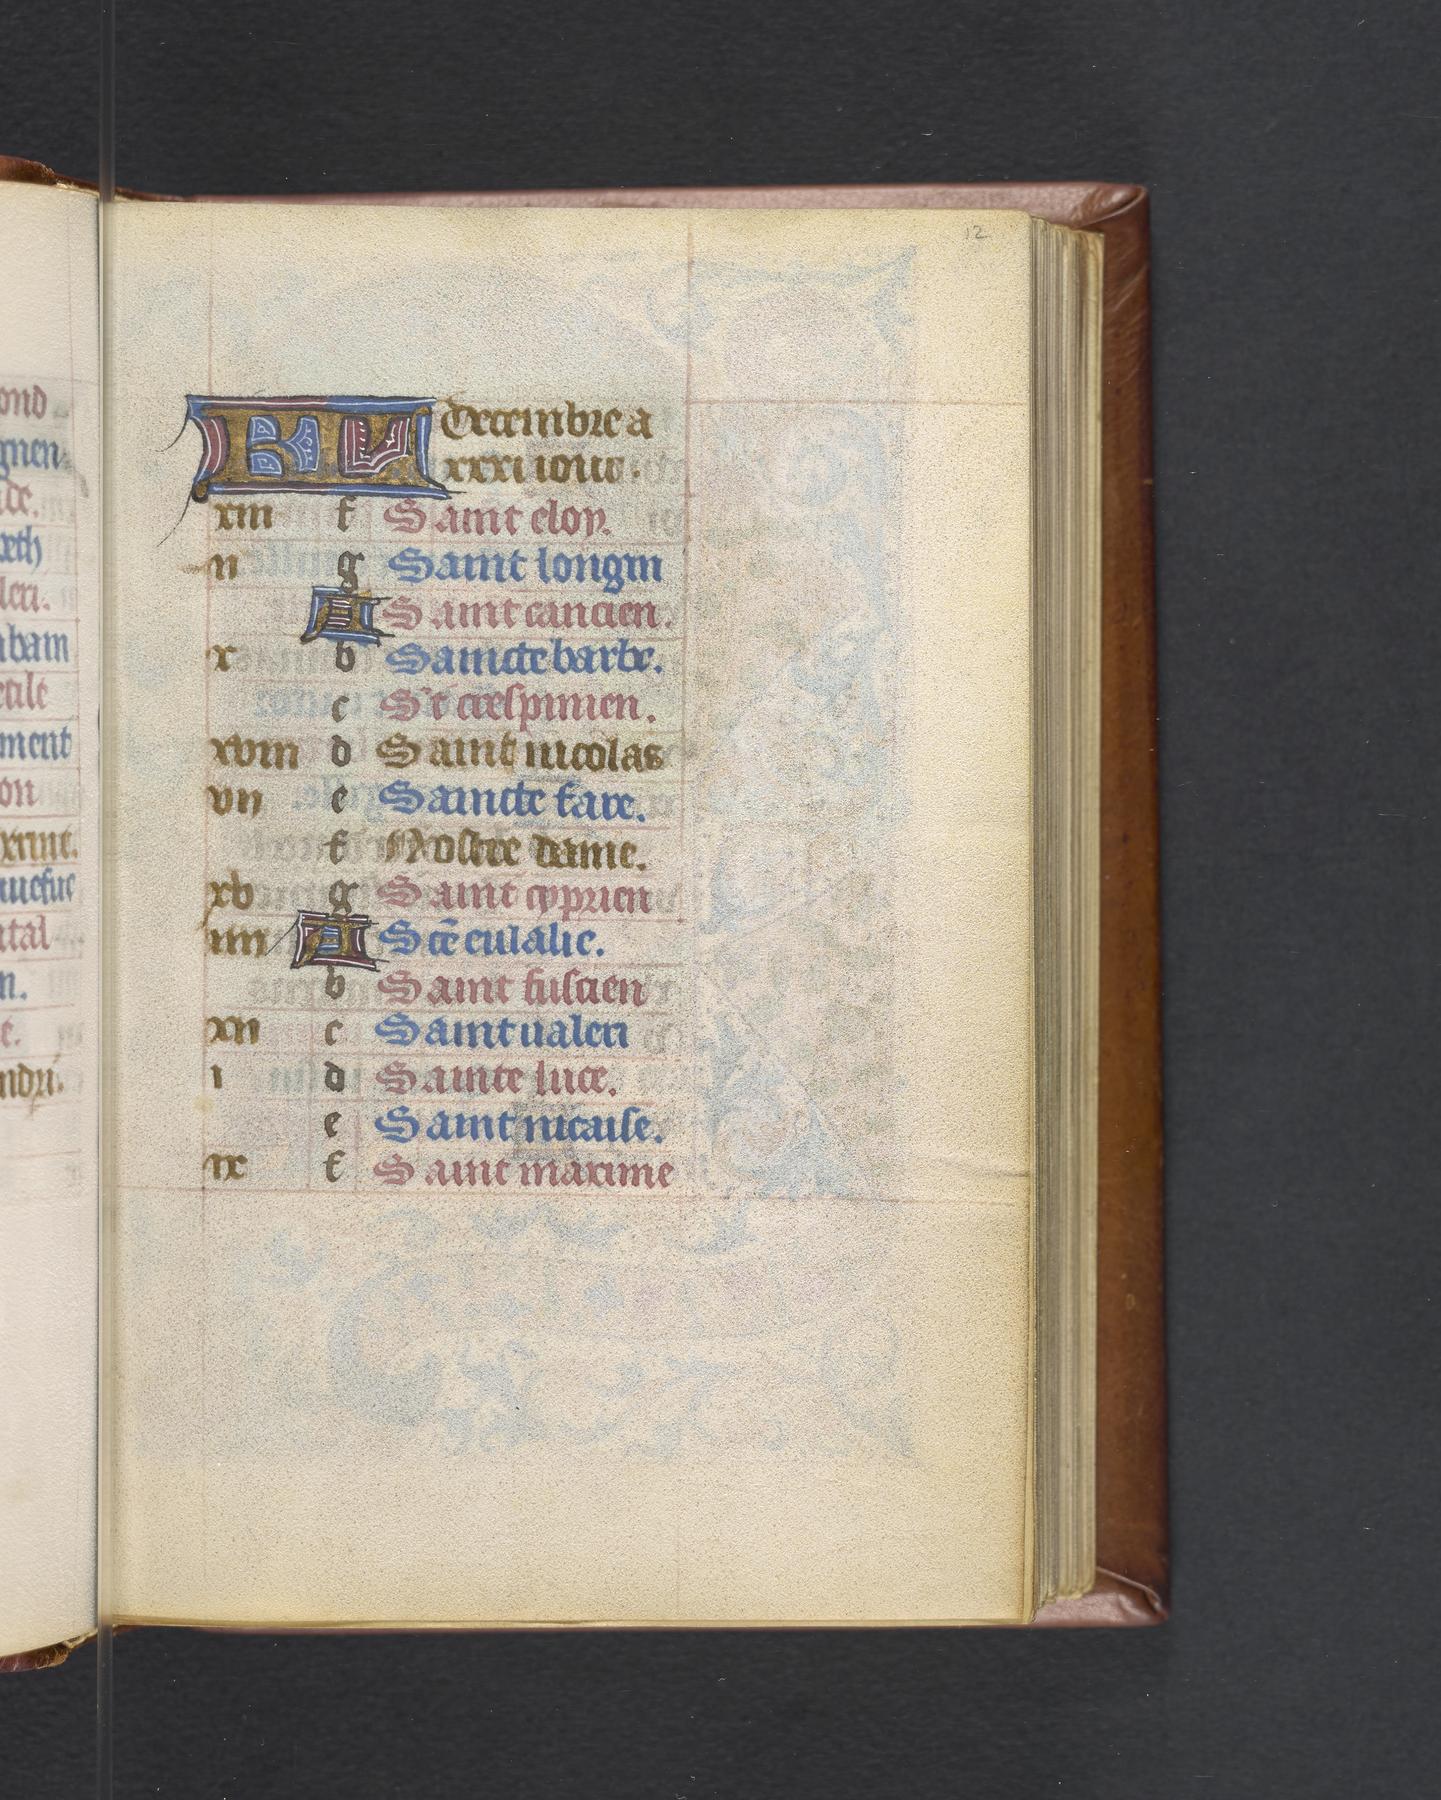 12
KL Decembre a
xxxi iour.
xiii f Saint eloy.
ii g Saint longin
A Saint cancien.
x b Saincte barbe.
c St crespinien.
xviii d Saint nicolas
vii e Saincte fare.
f Nostre dame.
xv g Saint cyprien
iiii A Scē eulalie.
b Saint fuscien
xii c Saint valeri
i d Sainte luce.
e Saint nicaise.
ix f Saint maxime